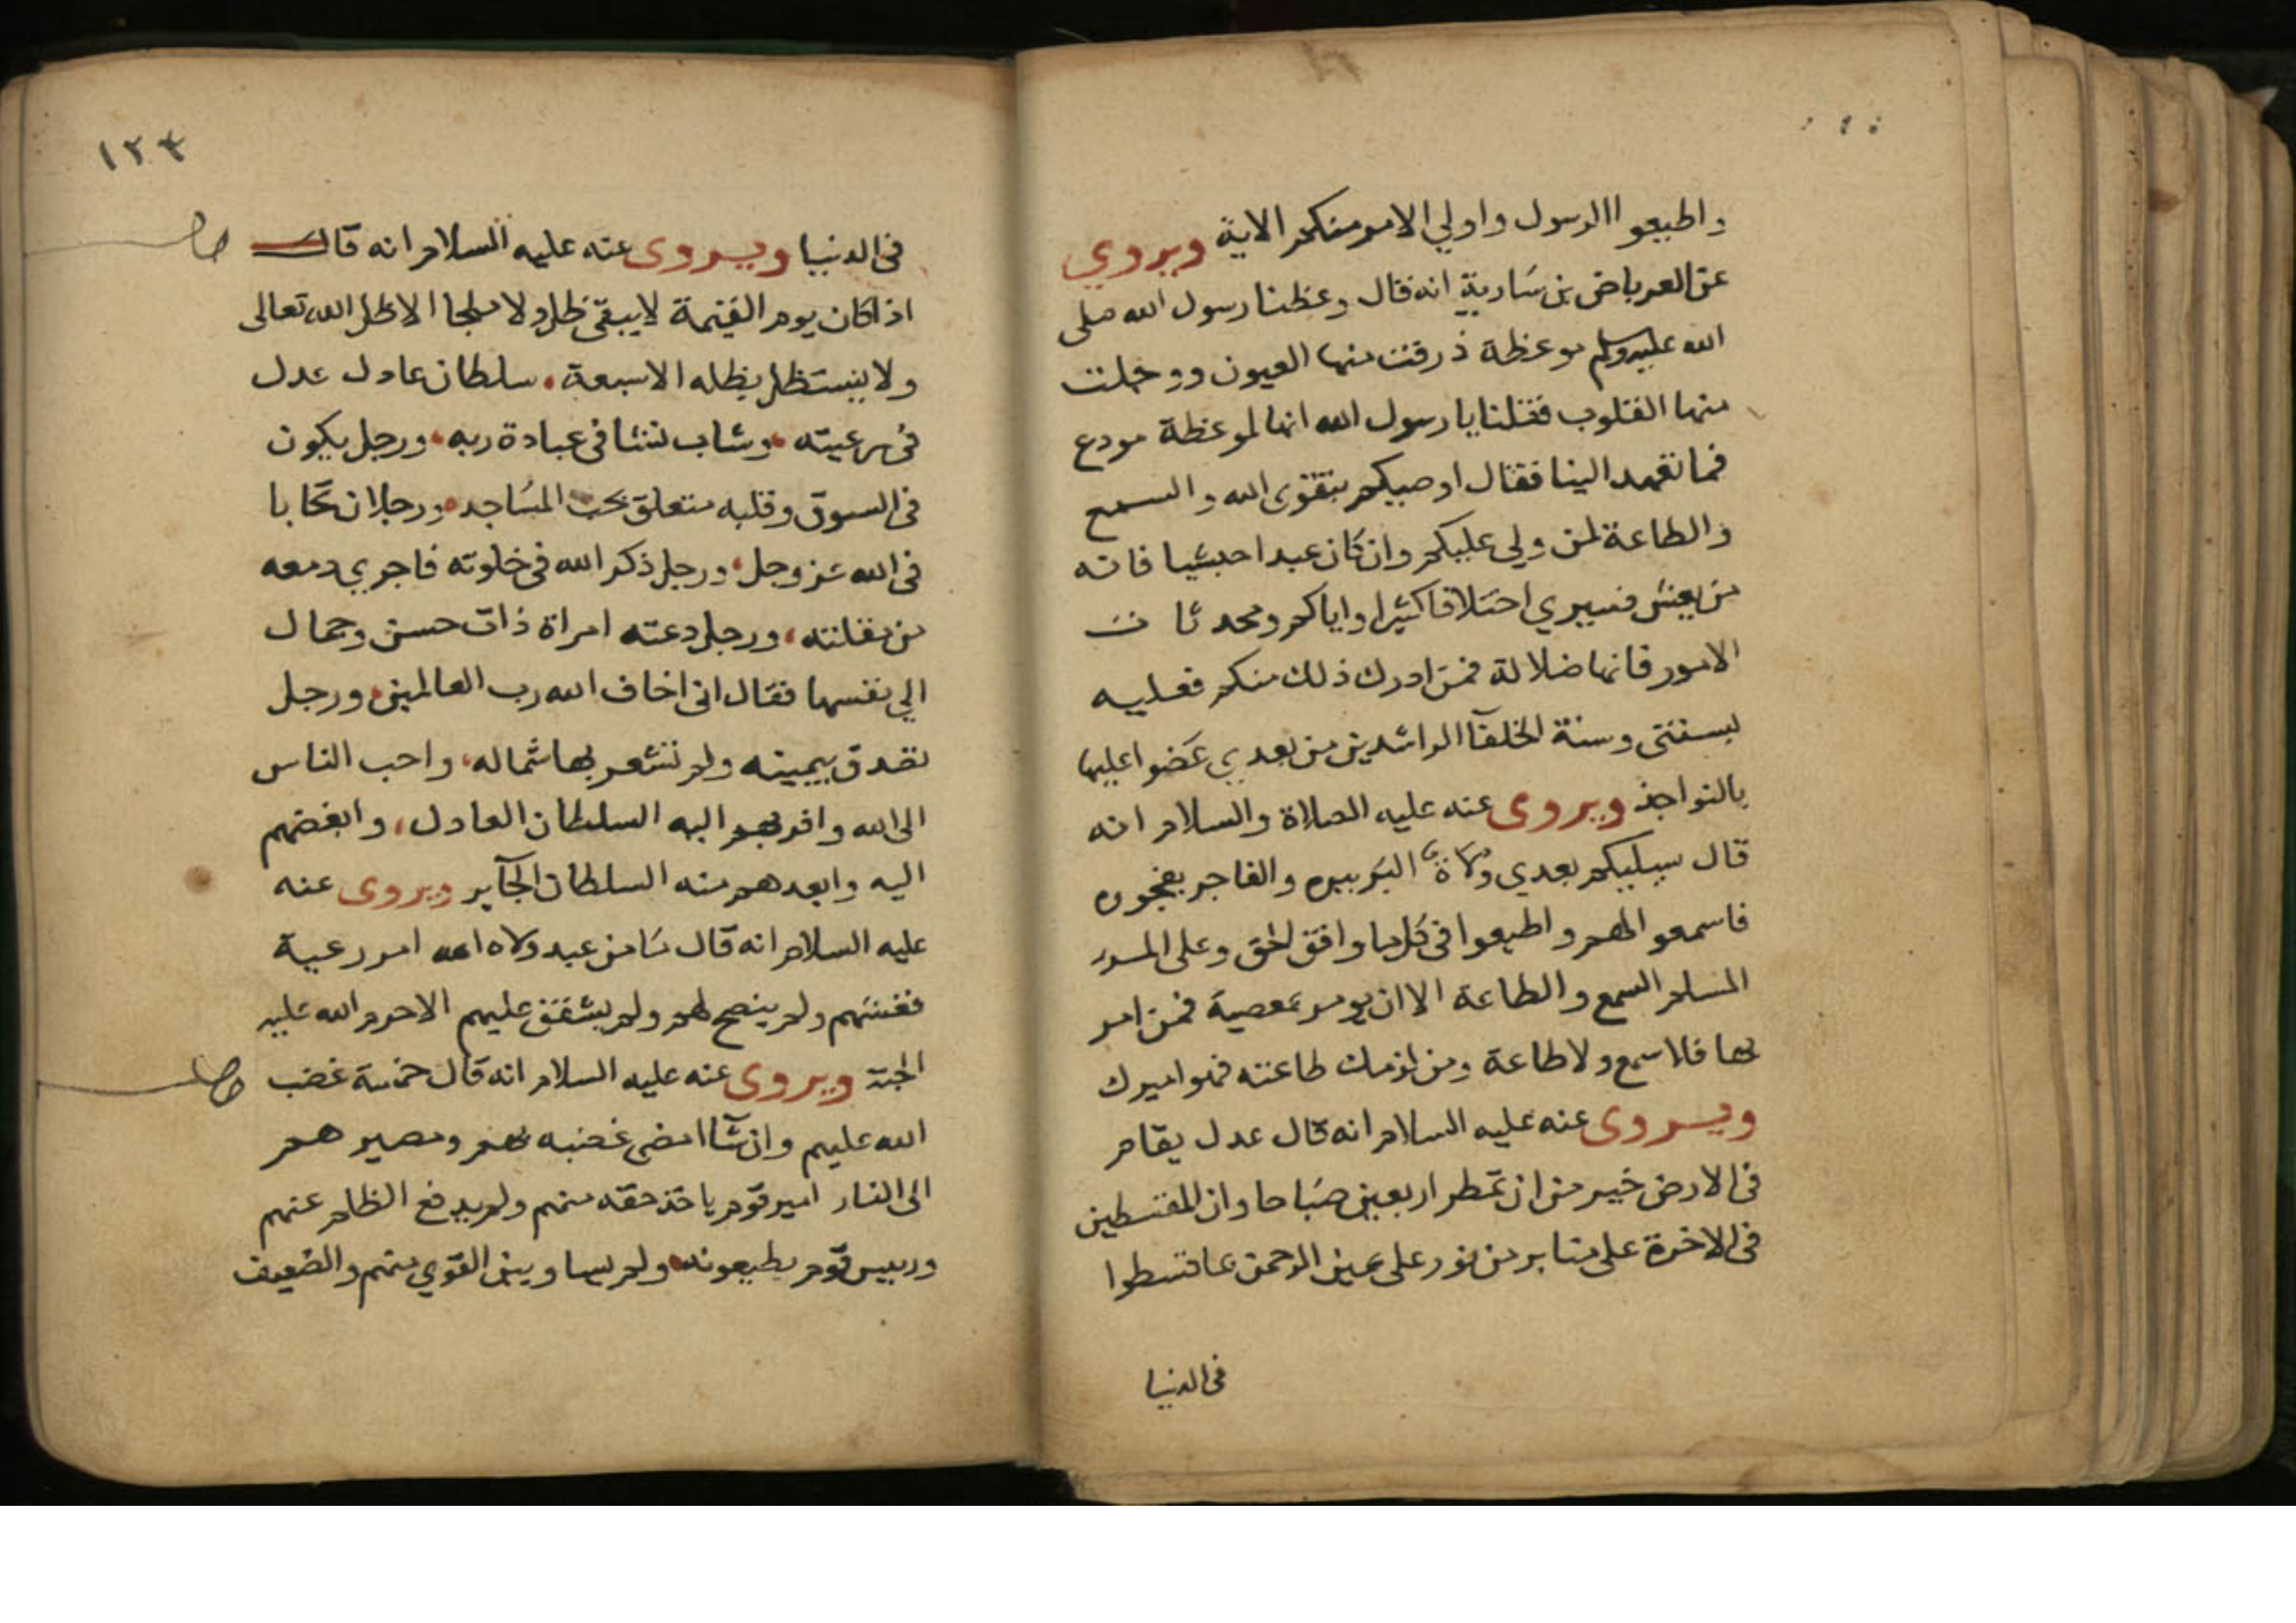 واطيعوا الرسول واولي الامر منكم الاية ويروي
عن العرباض بن سارية انه قال وعظنا رسول الله صلى
الله عليه وسلم موعظة ذرفت منها العيون ووجلت
منها القلوب فقلنا يا رسول الله انها لموعظة مودع
فما تعهد الينا فقال اوصيكم بتقوى الله والسمع
والطاعة لمن ولي عليكم وان كان عبدا حبشيا فانه
من يعش فسيري اختلافا كثيرا واياكم ومحدثات
الامور فانها ضلالة فمن ادرك ذلك منكم فعليه
بسنتى وسنة الخلفآ الراشدين من بعدي عضوا عليها
بالنواجذ ويروى عنه عليه الصلاة والسلام انه
قال سيليكم بعدي ولاة البر ببره والفاجر بفجوره
فاسمعوا لهم واطيعوا فى كل ما وافق الحق وعلى المرء
المسلم السمع والطاعة الا ان يومر بمعصية فمن امر
بها فلا سمع ولا طاعة ومن لزمك طاعته فهو اميرك
ويروى عنه عليه السلام انه قال عدل يقام
فى الارض خير من ان تمطر اربعين صباحا وان المقسطين
فى الاخرة على منابر من نور على يمين الرحمن بما اقسطوا
فى الدنيا
١٢٣
فى الدنيا ويروى عنه عليه السلام انه قال
اذا كان يوم القيمة لا يبقى ظل ولا ملجا الا ظل الله تعالى
ولا يستظل بظله الا سبعة سلطان عادل عدل
فى رعيته وشاب نشا فى عبادة ربه ورجل يكون
فى السوق وقلبه متعلق بحب المساجد ورجلان تحابا
فى الله عز وجل ورجل ذكر الله فى خلوته فاجري دمعه
من مقلته ورجل دعته امراة ذات حسن وجمال
الي نفسها فقال انى اخاف الله رب العالمين ورجل
تصدق بيمينه ولم تشعر بها شماله واحب الناس
الى الله واقربهم اليه السلطان العادل وابغضهم
اليه وابعدهم منه السلطان الجآير ويروى عنه
عليه السلام انه قال ما من عبد ولاه الله امر رعية
فغشهم ولم ينصح لهم ولم يشفق عليهم الا حرم الله عليه
الجنة ويروى عنه عليه السلام انه قال خمسة غضب
الله عليهم وان شآ امضى غضبه بهم ومصيرهم
الى النار امير قوم ياخذ حقه منهم ولم يدفع الظلم عنهم
ورييس قوم يطيعونه ولم يساو بين القوي منهم والضعيف